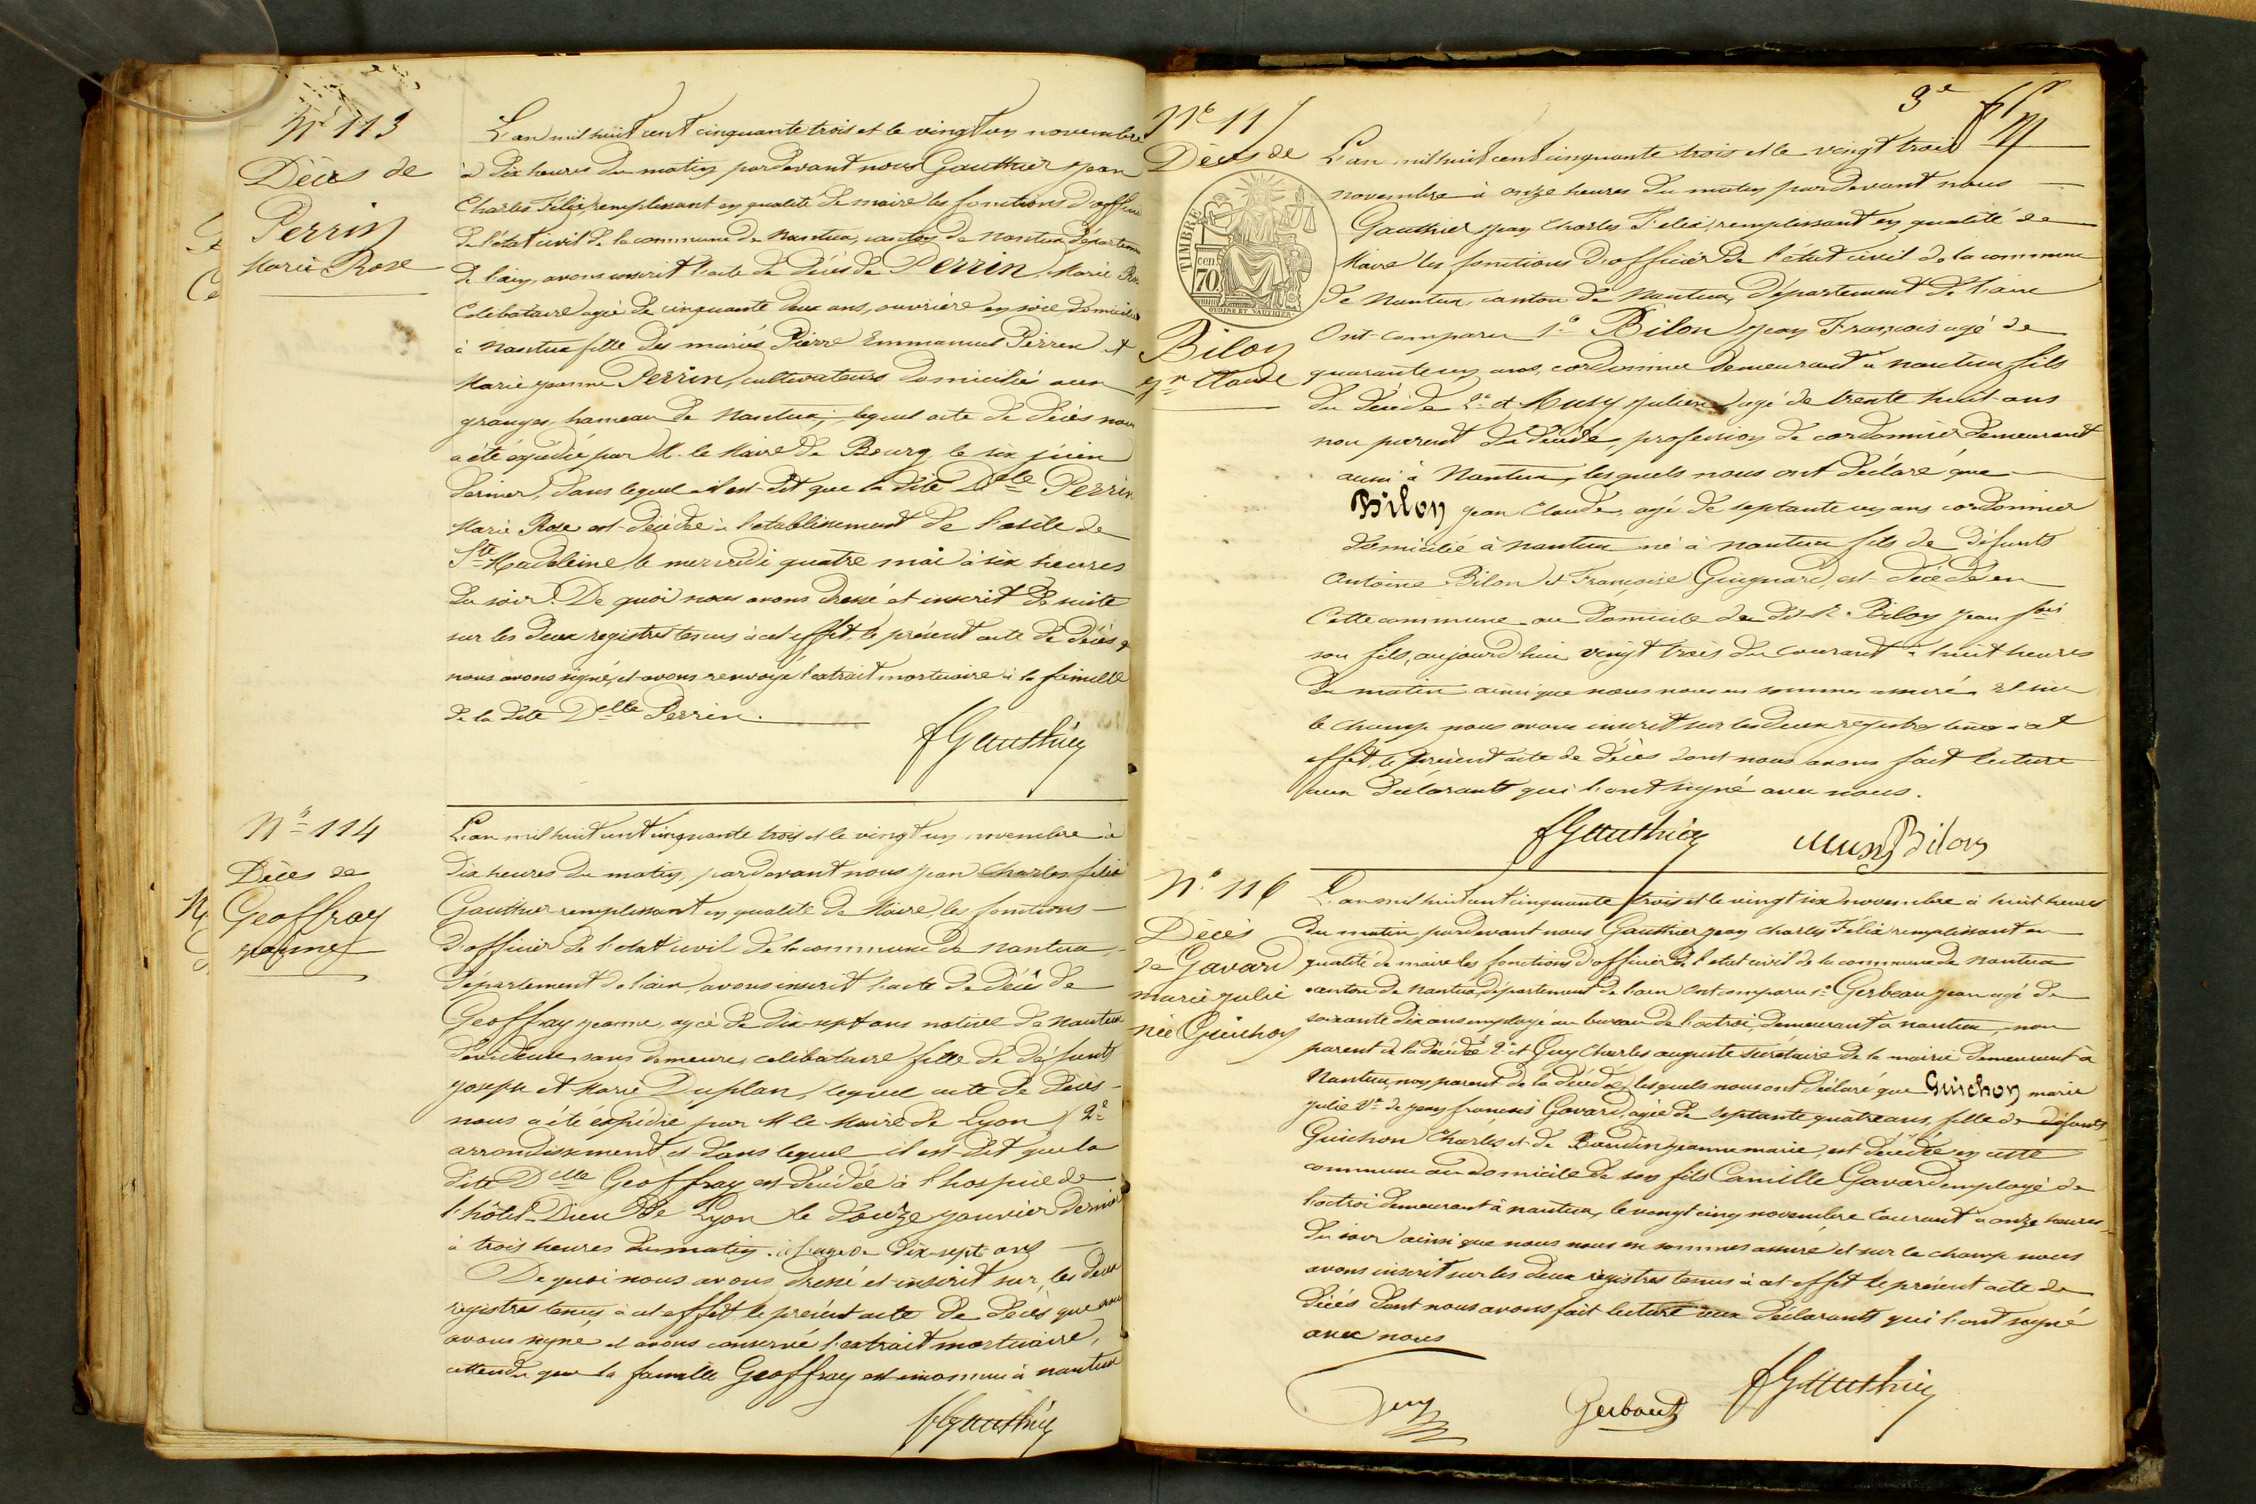 Nº 113
Décès de
Perrin
Marie Rose
L'an mil huit cent cinquante trois et le vingt un novembre
à dix heures du matin pardevant nous Gauthier Jean
Charles Félix, remplissant en qualité de maire les fonctions d'officier
de l'état civil de la commune de Nantua, canton de Nantua département
de l'ain, avons inscrit l'acte de décès de Perrin Marie Rose
Celibataire agée de cinquante deux ans, ouvrière en soie domiciliée
à Nantua fille des mariés Pierre Emmanuel Perrin et
Marie Jeanne Perrin, cultivateurs domicilié aux
granges, hameau de Nantua; lequel acte de décès nous
a été expédié par M. le Maire de Bourg le six juin
dernier, dans lequel il est dit que la dite Delle Perrin
Marie Rose est décédée à l'etablissement de l'asile de
Ste Madeleine le mercredi quatre mai à six heures
du soir. De quoi nous avons dressé et inscrit de suite
sur les deux registres tenus à cet effet, le présent acte de décès q.
nous avons signé, et avons renvoyé l'extrait mortuaire à la famille
de la dite Delle Perrin.
fGauthier
Nº 114
Décès de
Geoffray
jeanne
L'an mil huit cent cinquante trois et le vingt un novembre à
dix heures du matin, pardevant nous Jean Charles félix
Gauthier remplissant en qualité de Maire, les fonctions
d'officier de l'état civil de la commune de Nantua,
département de l'ain, avons inscrit l'acte de décès de
Geoffray jeanne, agée de dix sept ans native de Nantua
dévideuse, sans demeure, celibataire fille de défunts
Joseph et Marie Duplan, lequel acte de décès
nous a été expédié par M le Maire de Lyon, 2e
arrondissement, et dans lequel il est dit que la
dite Delle Geoffray est décédée à l'hospice de
l'hôtel-Dieu de Lyon le douze janvier dernier
à trois heures du matin. à l'age de dix-sept ans
De quoi nous avons dressé et inscrit sur les deux
registres tenus à cet effet le présent acte de décès que nous
avons signé et avons conservé l'extrait mortuaire,
attendu que la famille Geoffray est inconnue à Nantua
fGauthier
3e
Nº 115
Décès de
TIMBRE
cen
70
Bilon
Jn Claude
L'an mil huit cent cinquante trois et le vingt trois
novembre à onze heures du matin pardevant nous
Gauthier Jean Charles Félix, remplissant en qualité de
Maire les fonctions d'officier de l'état civil de la commune
de Nantua, canton de Nantua, département de l'ain
Ont comparu 1º Bilon Jean François agé de
quarante un ans, cordonnier demeurant à nantua fils
du décédé 2º et Musy Julien agé de trente huit ans
non parent du décédé, profession de cordonnier demeurant
aussi à Nantua, lesquels nous ont déclaré que
Bilon Jean Claude, agé de septante un ans cordonnier
domicilié à nantua né à nantua fils de défunts
Antoine Bilon et Françoise Guignard, est décédé en
Cette commune au domicile du dit Sr Bilon Jean fois
son fils, aujourd'hui vingt trois du courant à huit heures
du matin ainsi que nous nous en sommes assuré et sur
le champ nous avons inscrit sur les deux registres tenus à cet
effet, le présent acte de décès dont nous avons fait lecture
aux déclarants qui l'ont signé avec nous.
fGauthier Musy Bilon
Nº 116
Décès
de Gavard
marie julie
née Guichon
L'an mil huit cent cinquante trois et le vingt six novembre à huit heures
du matin pardevant nous Gauthier Jean Charles Félix remplissant en
qualité de maire les fonctions d'officier de l'état civil de la commune de nantua
canton de Nantua, département de l'ain Ont comparu 1º Gerbeau Jean agé de
soixante dix ans employé au bureau de l'octroi, demeurant à nantua, non
parent de la décédée 2º et Guy Charles auguste secrétaire de la mairie demeurant à
Nantua, non parent de la décédée, lesquels nous ont déclaré que Guichon marie
julie Ve de Jean francois Gavard, agée de septante quatre ans, fille de défunts
Guichon Charles et de Baudin jeanne marie, est décédée en cette
commune au domicile de son fils Camille Gavard employé de
l'octroi demeurant à nantua, le vingt cinq novembre Courant à onze heures
du soir ainsi que nous nous en sommes assuré et sur le champ nous
avons inscrit sur les deux registres tenus à cet effet le présent acte de
décès dont nous avons fait lecture aux déclarants qui l'ont signé
avec nous
Guy Gerbout fGauthier